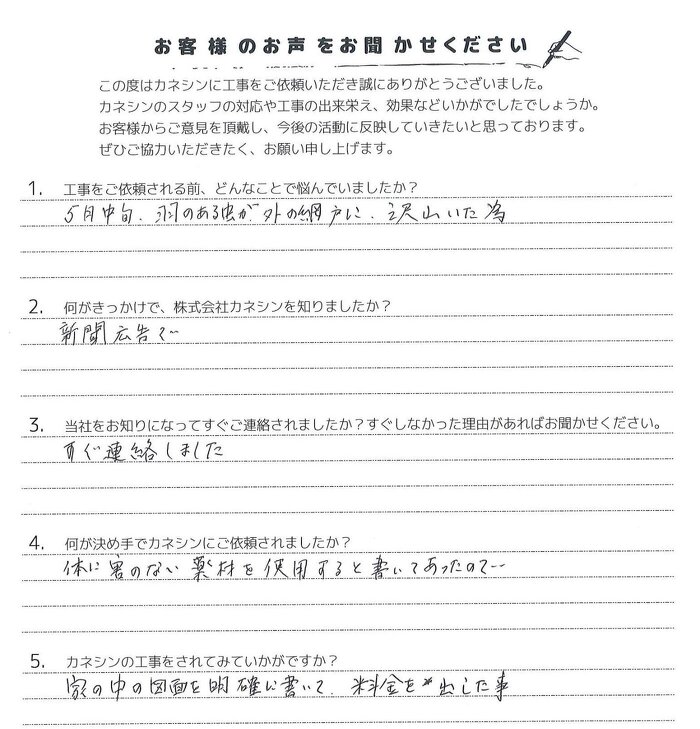 お客様のお声をお聞かせください
この度はカネシンに工事をご依頼いただき誠にありがとうございました。
カネシンのスタッフの対応や工事の出来栄え、効果などいかがでしたでしょうか。
お客様からご意見を頂戴し、今後の活動に反映していきたいと思っております。
ぜひご協力いただきたく、お願い申し上げます。
1. 工事をご依頼される前、どんなことで悩んでいましたか？
5月中旬、羽のある虫が外の網戸に、沢山いた為
2. 何がきっかけで、株式会社カネシンを知りましたか？
新聞広告で
3. 当社をお知りになってすぐご連絡されましたか？すぐしなかった理由があればお聞かせください。
すぐ連絡しました
4. 何が決め手でカネシンにご依頼されましたか？
体に害のない薬材を使用すると書いてあったので
5. カネシンの工事をされてみていかがですか？
家の中の図面を明確に書いて、料金を出した事